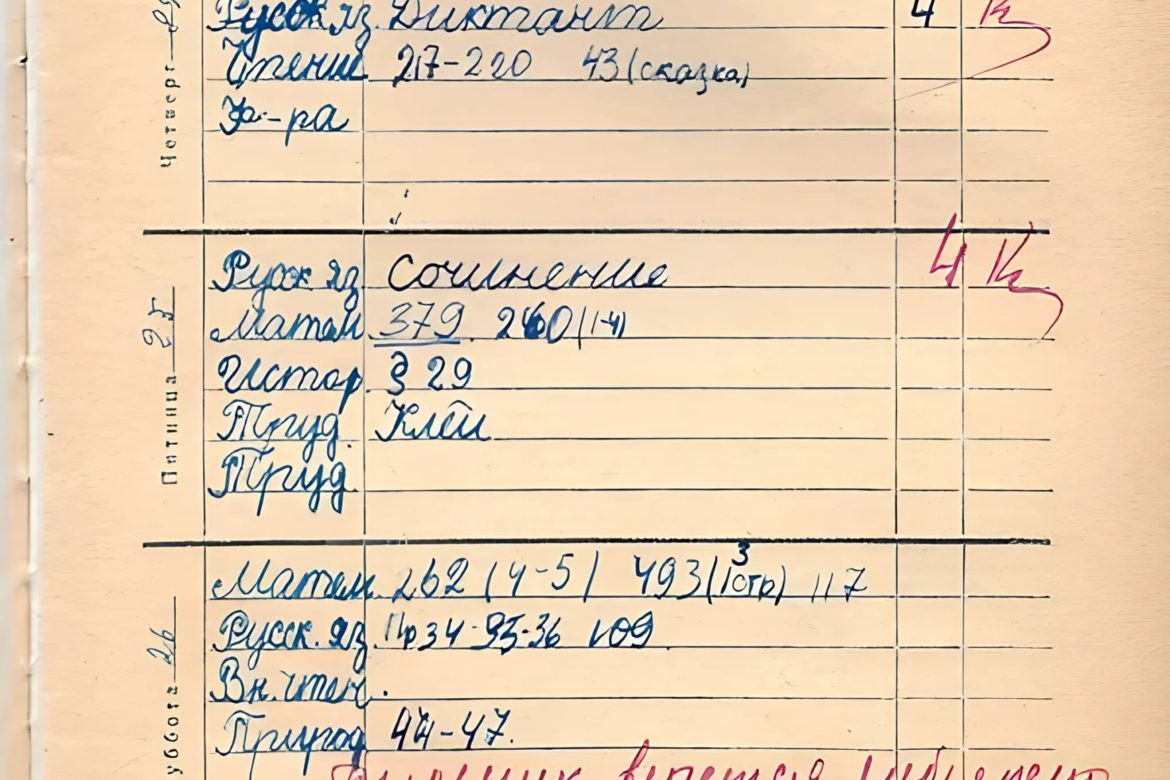 Четверг
Русск яз Диктант 4
Чтение 217-220 43 (сказка)
Ф-ра
Пятница 25
Русск яз Сочинение 4
Матем 379. 260 (1-4)
Истор. § 29
Труд. Клей
Труд.
уббота 26
Матем. 262 (4-5) 493 (3 стр) 117
Русск. яз. Пр 34-35-36 109
Вн. чтен.
Природ 44-47.
ведется